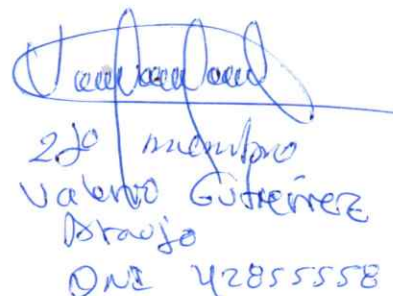 2do miembro
Valerio Gutierrez
Araujo
DNI 42855558